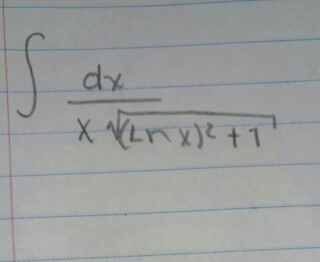 ∫ dx
x √(Ln x)² + 1